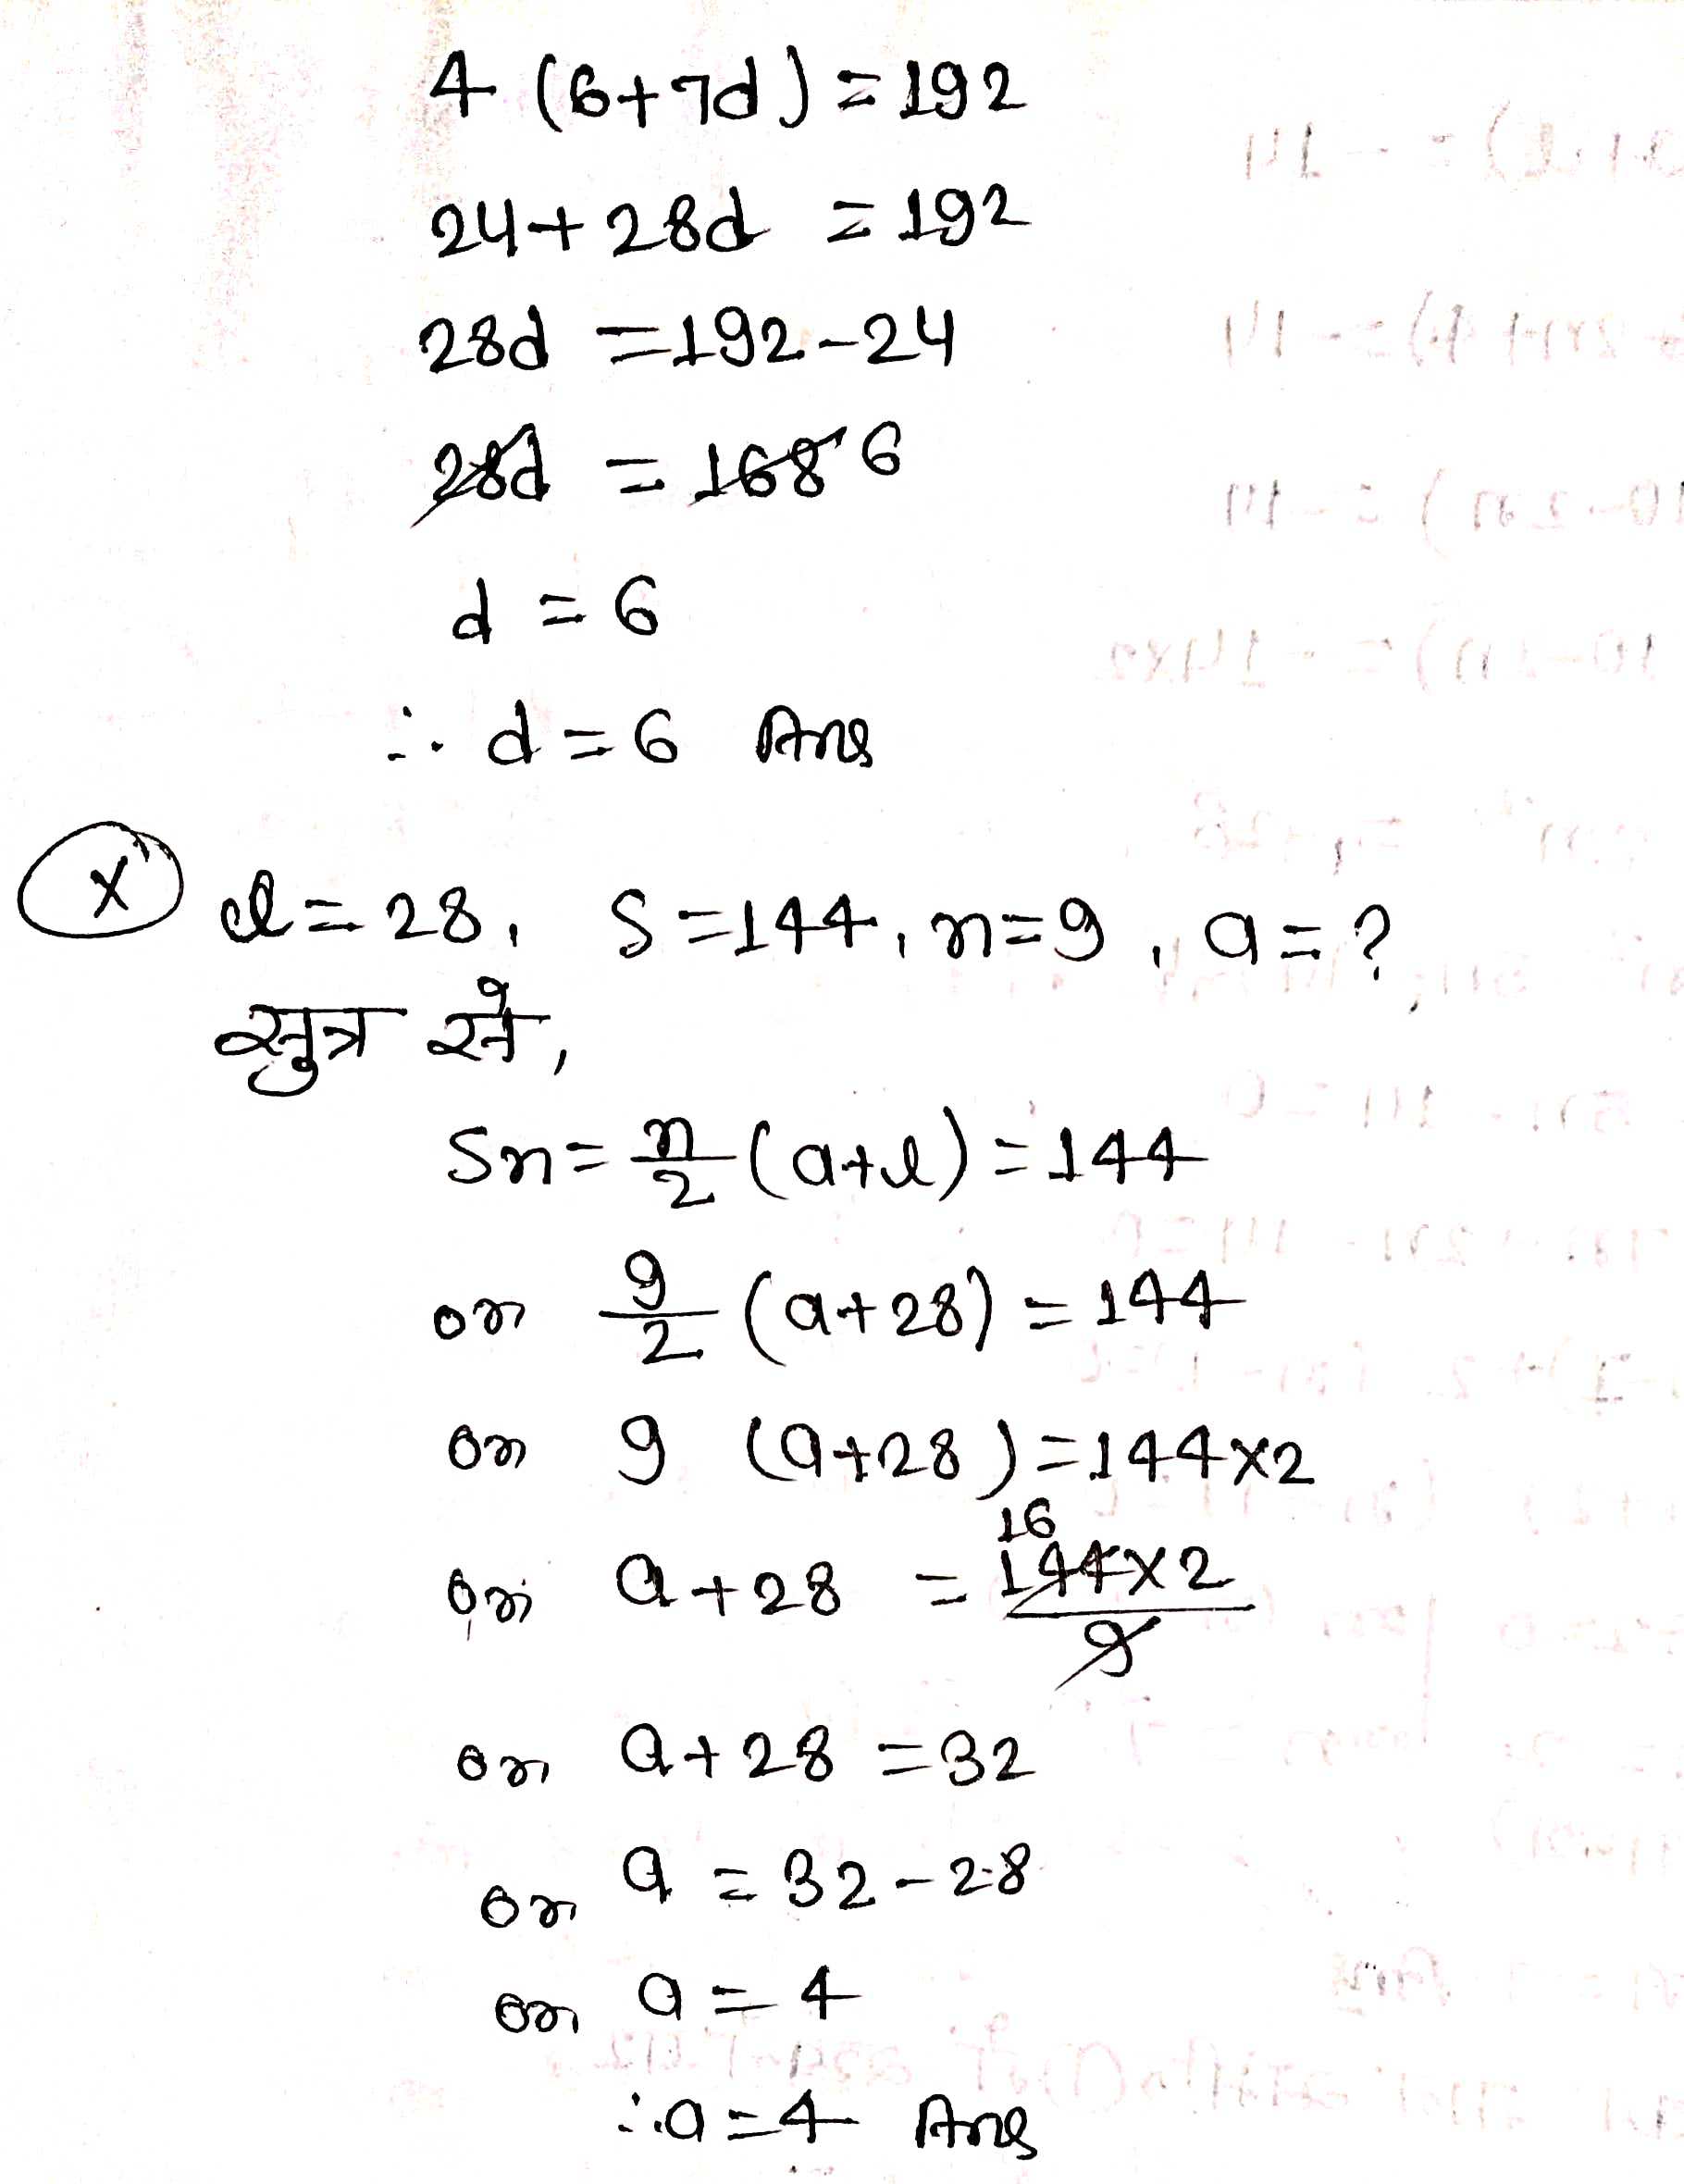 4 (6+7d) = 192
24+28d = 192
28d = 192-24
28d = 168 6
d = 6
∴ d = 6 Ans
(x) l = 28, S = 144, n = 9, a = ?
सुत्र से,
Sn = n/2 (a+l) = 144
or 9/2 (a+28) = 144
or 9 (a+28) = 144×2
or a+28 = 16 144×2/9
or a+28 = 32
or a = 32-28
or a = 4
∴ a = 4 Ans